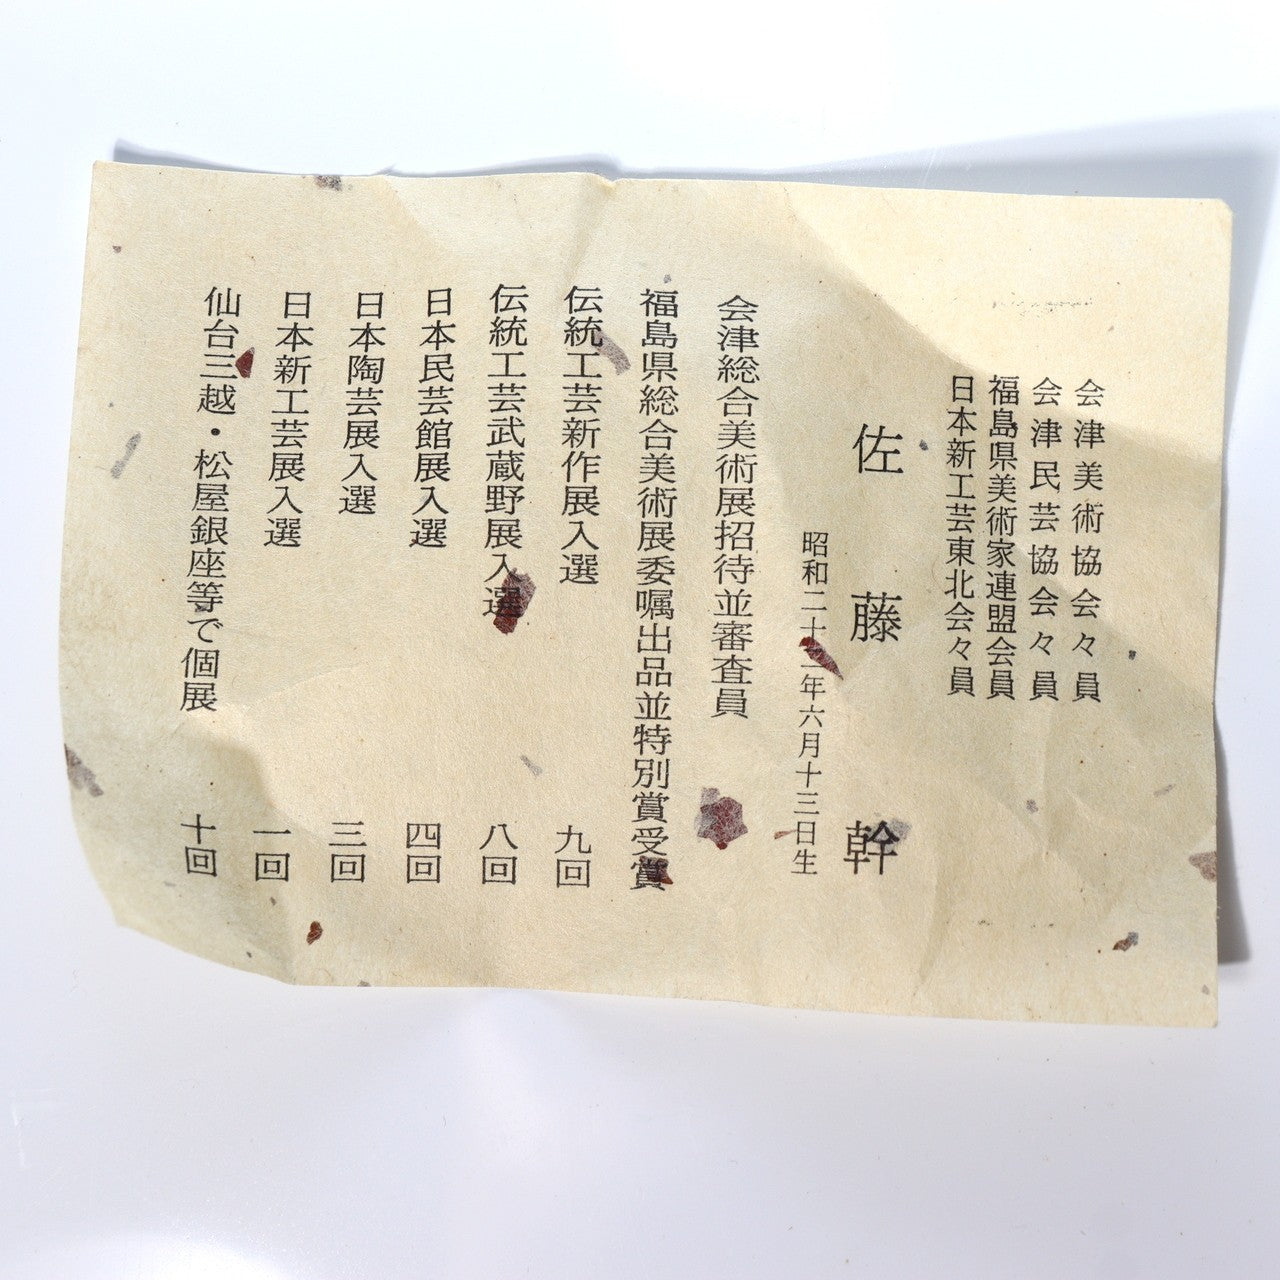 会津美術協会々員
会津民芸協会々員
福島県美術家連盟会員
日本新工芸東北会々員
佐藤幹
昭和二十二年六月十三日生
会津総合美術展招待並審査員
福島県総合美術展委嘱出品並特別賞受賞
伝統工芸新作展入選 九回
伝統工芸武蔵野展入選 八回
日本民芸館展入選 四回
日本陶芸展入選 三回
日本新工芸展入選 一回
仙台三越・松屋銀座等で個展 十回